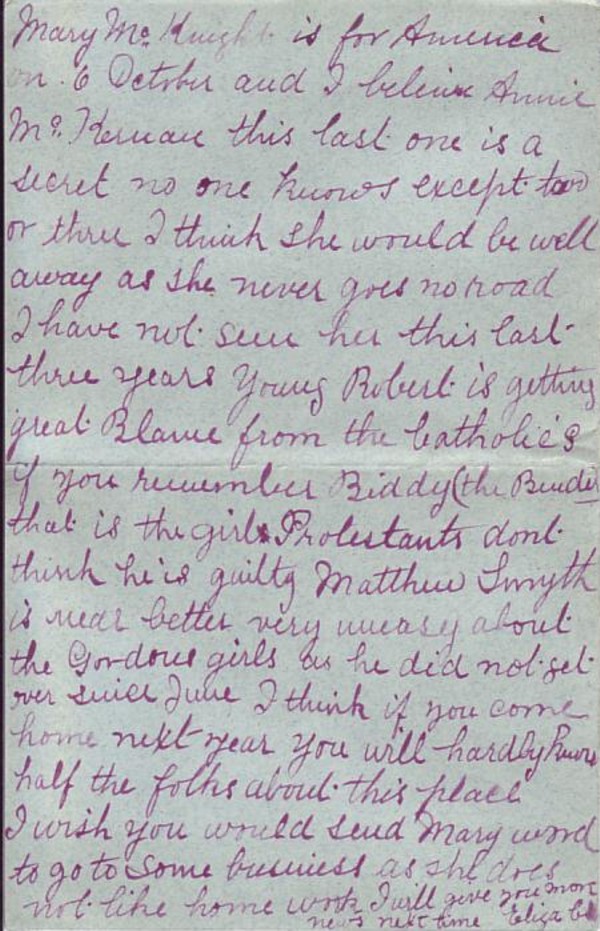 Mary Mc Knight is for America
on 6 October and I beleive Annie
Mc. Kernan this last one is a
secret no one knows except two
or three I think she would be well
away as she never goes no road
I have not seen her this last
three years Young Robert is getting
great Blame from the Catholic's
if you remember Biddy (the Bender
that is the girl Protestants dont
think he is guilty Matthew Smyth
is near better very uneasy about
the Gordons girls as he did not get
over since June I think if you come
home next year you will hardly know
half the folks about this place
I wish you would send Mary word
to go to some business as she does
not like home work I will give you more
news next time Eliza